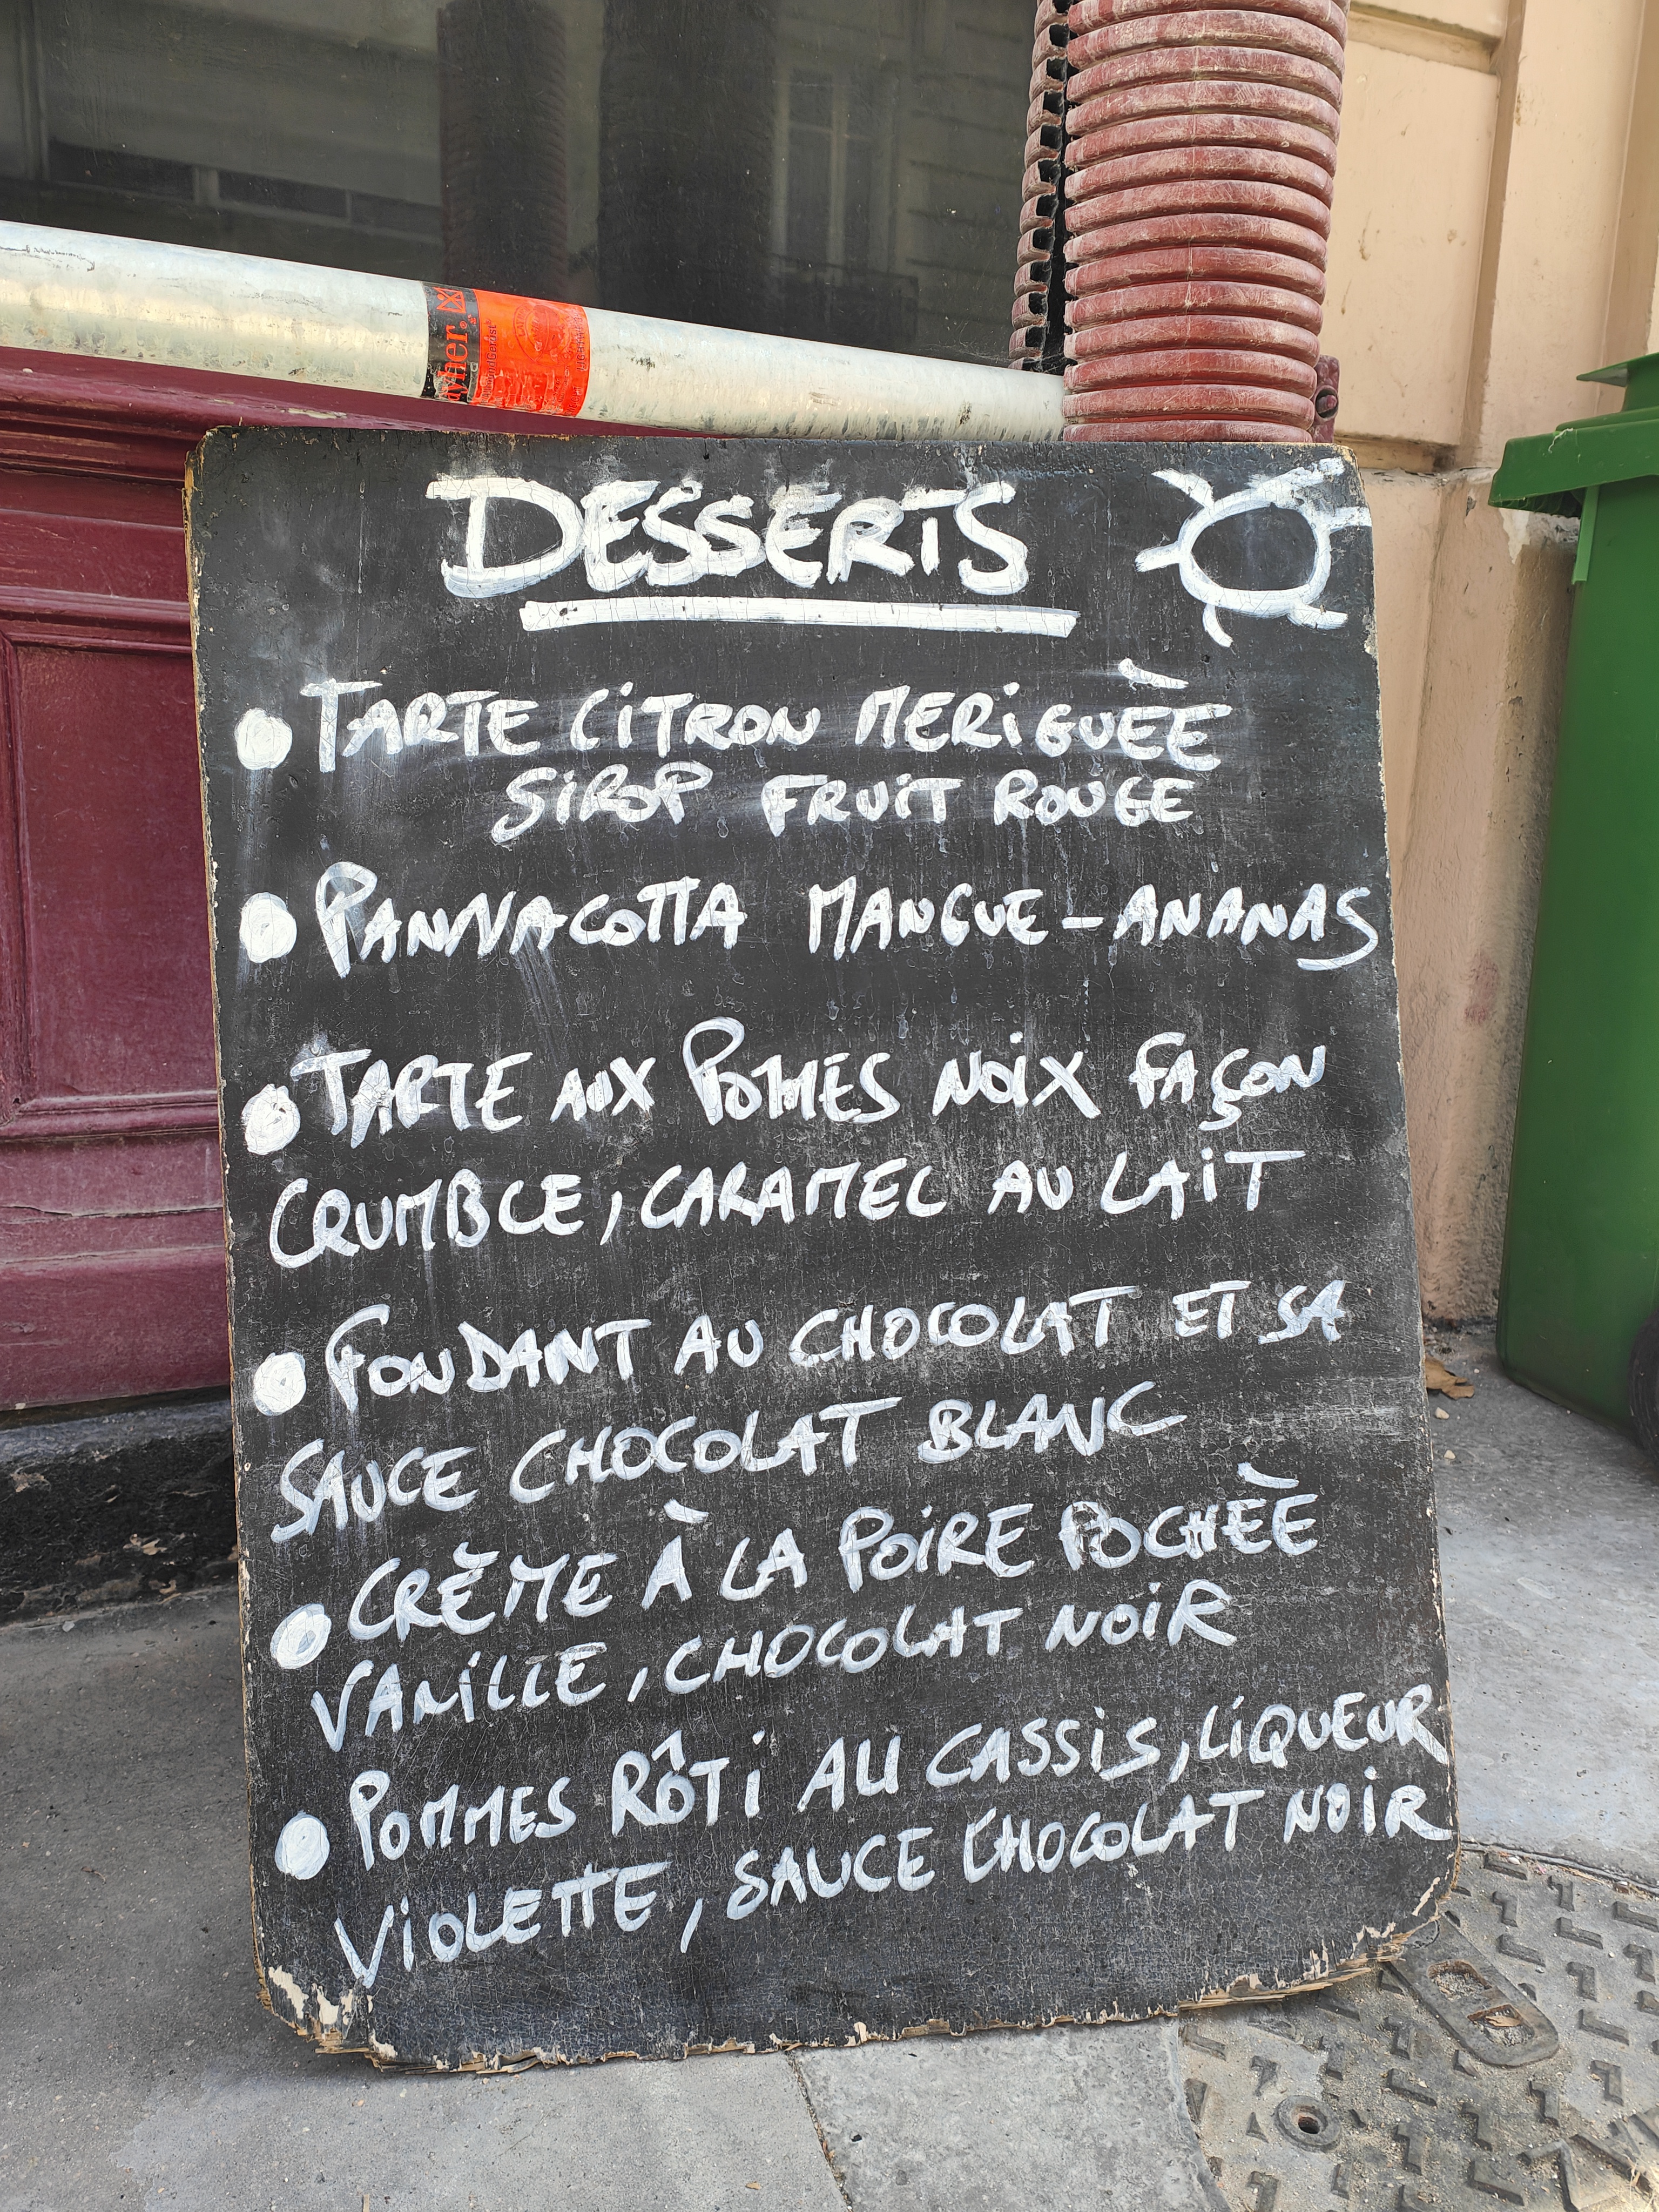 DESSERTS
• TARTE CiTRON MERiGUÈE
SiROP FRUiT ROUGE
• PANNACOTTA MANGUE-ANANAS
• TARTE AUX POMMES NOiX FAÇON
CRUMBLE, CARAMEL AU LAiT
• FONDANT AU CHOCOLAT ET SA
SAUCE CHOCOLAT BLANC
• CRÈME À LA POiRE POCHÈE
VANiLLE, CHOCOLAT NOiR
• POMMES RÔTi AU CASSiS, LiQUEUR
ViOLETTE, SAUCE CHOCOLAT NOiR